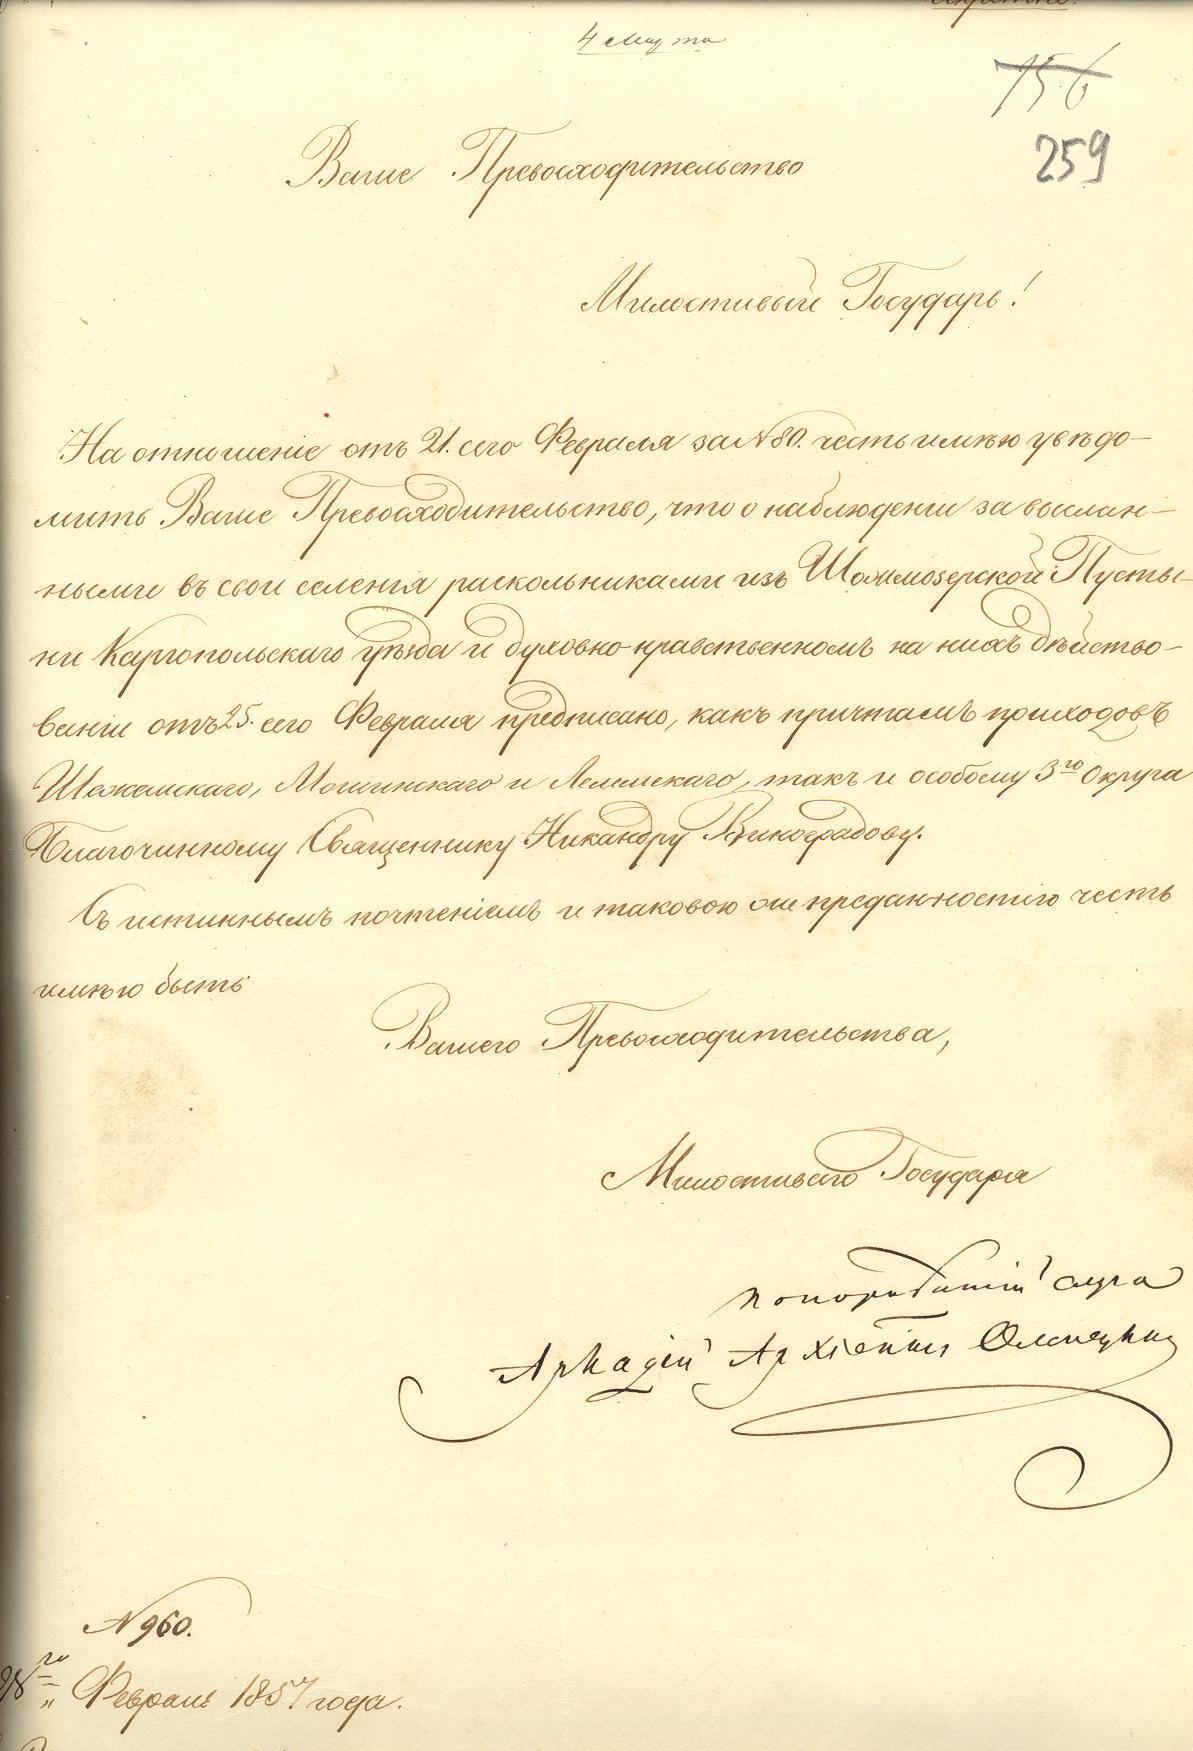 4 Марта
156
259
Ваше Превосходительство
Милостивый Государь!
На отношеніе отъ 21. сего Февраля за N 80. честь имѣю увѣдо-
мить Ваше Превосходительство, что о наблюденіи за выслан-
ными въ свои селенія раскольниками изъ Шожмозерской Пусты-
ни Каргопольскаго уѣзда и духовно-нравственномъ на нихъ дѣйство-
ваніи отъ 25. сего Февраля предписано, какъ причтамъ приходовъ
Шежемскаго, Мошинскаго и Лелемскаго, такъ и особому 3го Округа
Благочинному Священнику Никандру Виноградову.
Съ истиннымъ почтеніемъ и таковою же преданностію честь
имѣю быть
Вашего Превосходительства,
Милостиваго Государя
покорнѣйшій слуга
Аркадій Архіепіпъ Олонецкій
N 960.
28го „ Февраля 1857 года.